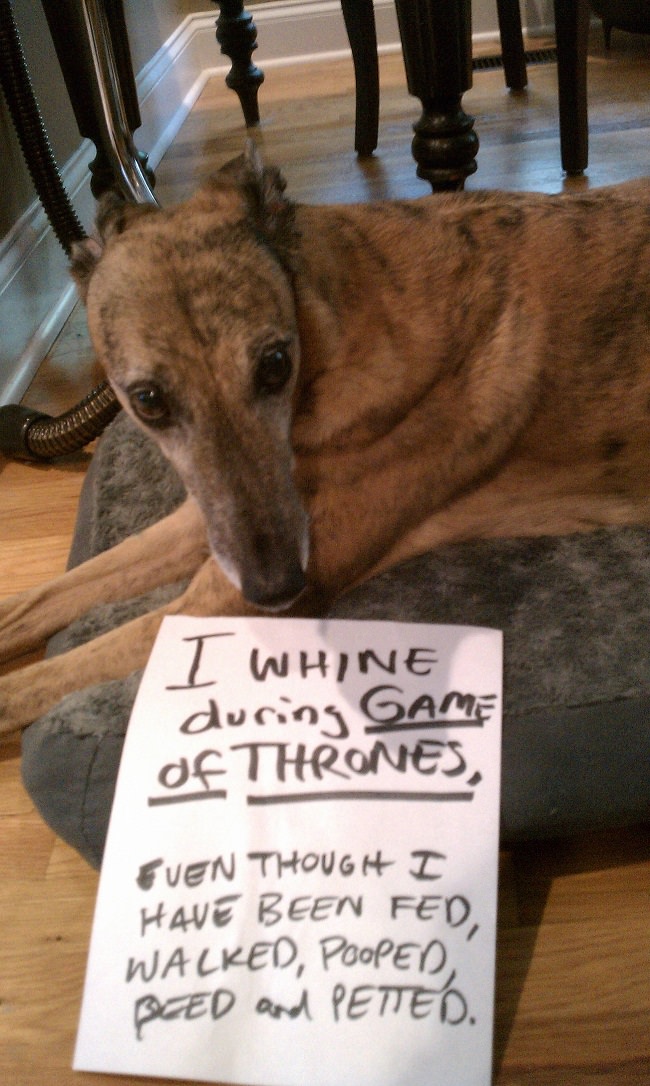 I WHINE
during GAME
of THRONES,
EVEN THOUGH I
HAVE BEEN FED,
WALKED, POOPED,
PEED and PETTED.